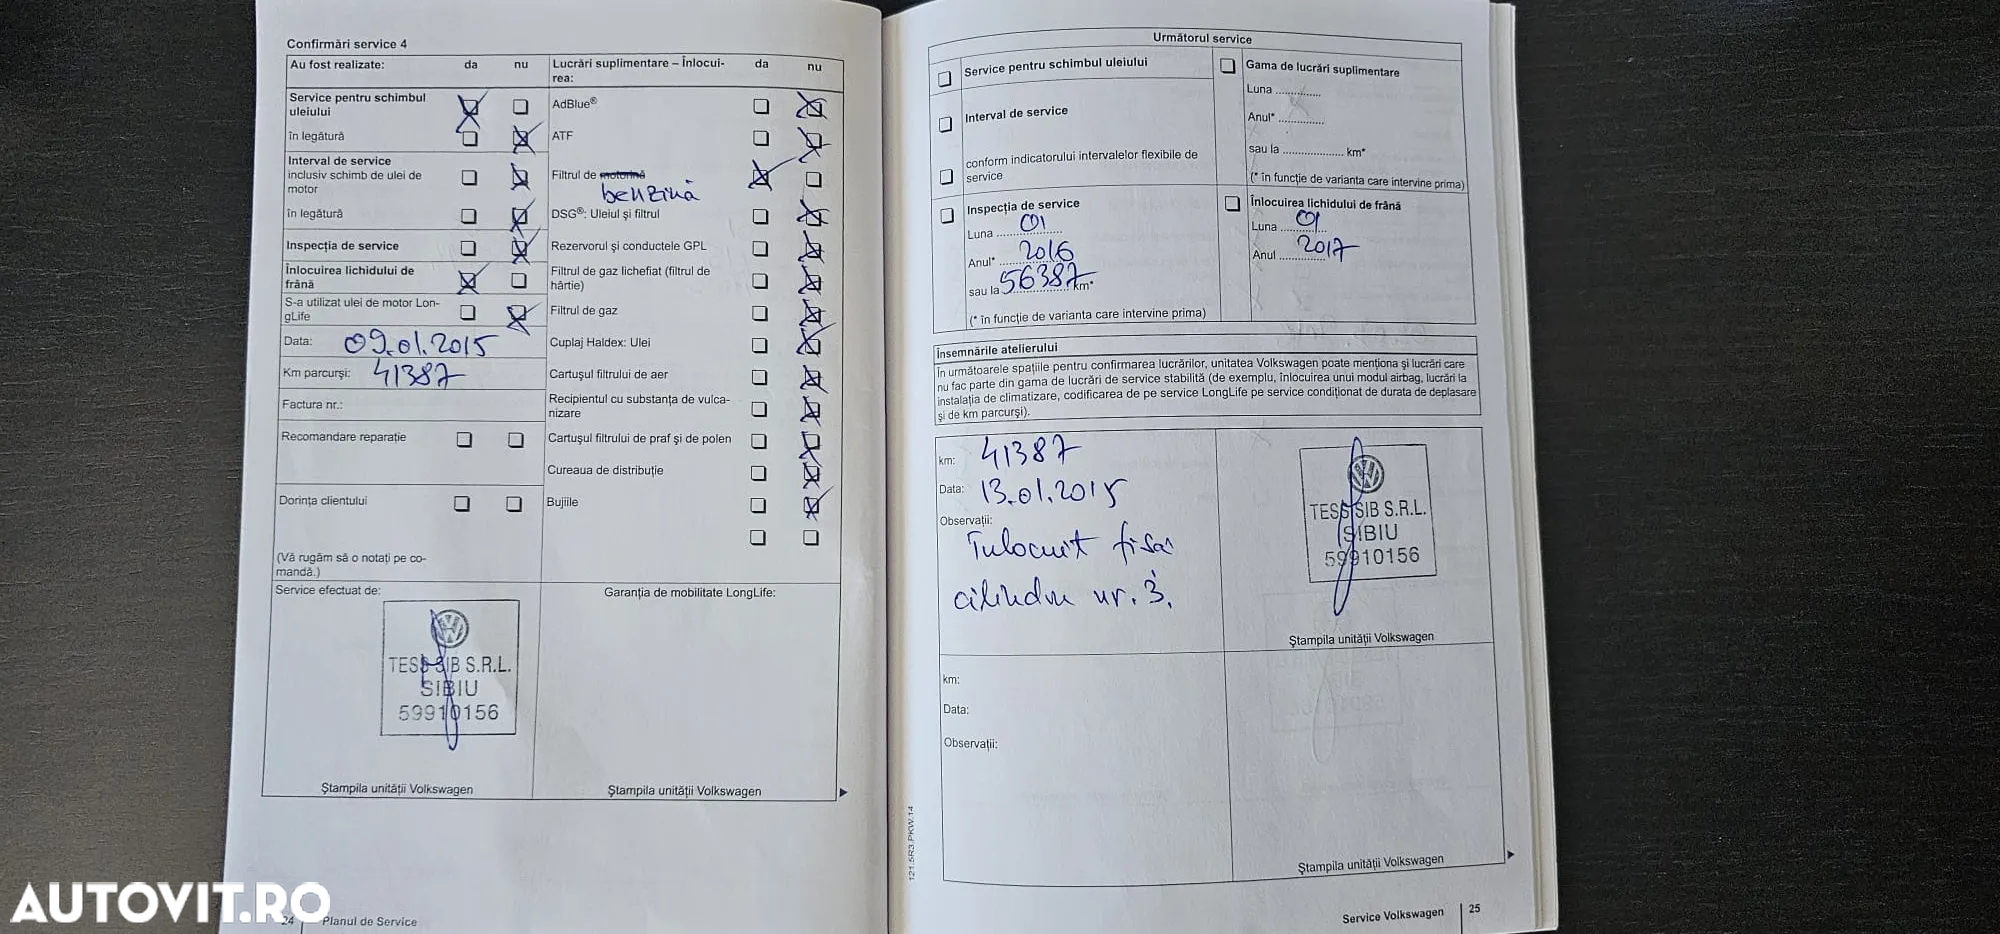 Confirmări service 4
Au fost realizate: da nu
Lucrări suplimentare – Înlocui-
rea: da nu
Service pentru schimbul
uleiului
în legătură
Interval de service
inclusiv schimb de ulei de
motor
în legătură
Inspecția de service
Înlocuirea lichidului de
frână
S-a utilizat ulei de motor Lon-
gLife
Data: 09.01.2015
Km parcurși: 41387
Factura nr.:
Recomandare reparație
Dorința clientului
(Vă rugăm să o notați pe co-
mandă.)
AdBlue®
ATF
Filtrul de motorină
benzină
DSG®: Uleiul și filtrul
Rezervorul și conductele GPL
Filtrul de gaz lichefiat (filtrul de
hârtie)
Filtrul de gaz
Cuplaj Haldex: Ulei
Cartușul filtrului de aer
Recipientul cu substanța de vulca-
nizare
Cartușul filtrului de praf și de polen
Cureaua de distribuție
Bujiile
Service efectuat de:
TESS SIB S.R.L.
SIBIU
59910156
Ștampila unității Volkswagen
Garanția de mobilitate LongLife:
Ștampila unității Volkswagen
24 Planul de Service
Următorul service
Service pentru schimbul uleiului
Interval de service
conform indicatorului intervalelor flexibile de
service
Gama de lucrări suplimentare
Luna ...............
Anul* ...............
sau la .................... km*
(* în funcție de varianta care intervine prima)
Inspecția de service
Luna 01
Anul* 2016
sau la 56387 km*
(* în funcție de varianta care intervine prima)
Înlocuirea lichidului de frână
Luna 01
Anul 2017
Însemnările atelierului
În următoarele spațiile pentru confirmarea lucrărilor, unitatea Volkswagen poate menționa și lucrări care
nu fac parte din gama de lucrări de service stabilită (de exemplu, înlocuirea unui modul airbag, lucrări la
instalația de climatizare, codificarea de pe service LongLife pe service condiționat de durata de deplasare
și de km parcurși).
km: 41387
Data: 13.01.2015
Observații:
Înlocuit fisa
cilindru nr. 3.
TESS SIB S.R.L.
SIBIU
59910156
Ștampila unității Volkswagen
km:
Data:
Observații:
Ștampila unității Volkswagen
121.5R3.PKW.14
Service Volkswagen 25
AUTOVIT.RO